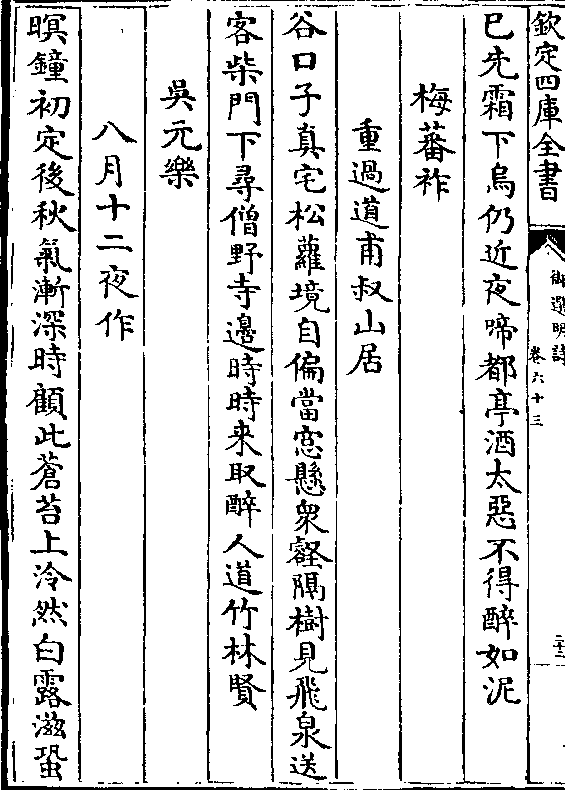 欽定四庫全書
御選明詩
卷六十三
二十二
已先霜下烏仍近夜啼都亭酒太惡不得醉如泥
梅蕃祚
重過道甫叔山居
谷口子真宅松蘿境自偏當窓懸衆壑隔樹見飛泉送
客柴門下尋僧野寺邊時時来取醉人道竹林賢
吳元樂
八月十二夜作
暝鐘初定後秋氣漸深時顧此蒼苔上泠然白露滋蛩